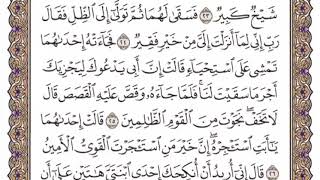 شَيْخٌ كَبِيرٌ ٢٣ فَسَقَىٰ لَهُمَا ثُمَّ تَوَلَّىٰٓ إِلَى ٱلظِّلِّ فَقَالَ
رَبِّ إِنِّى لِمَآ أَنزَلْتَ إِلَىَّ مِنْ خَيْرٍ فَقِيرٌ ٢٤ فَجَآءَتْهُ إِحْدَىٰهُمَا
تَمْشِى عَلَى ٱسْتِحْيَآءٍ قَالَتْ إِنَّ أَبِى يَدْعُوكَ لِيَجْزِيَكَ
أَجْرَ مَا سَقَيْتَ لَنَا ۚ فَلَمَّا جَآءَهُۥ وَقَصَّ عَلَيْهِ ٱلْقَصَصَ قَالَ
لَا تَخَفْ ۖ نَجَوْتَ مِنَ ٱلْقَوْمِ ٱلظَّٰلِمِينَ ٢٥ قَالَتْ إِحْدَىٰهُمَا
يَٰٓأَبَتِ ٱسْتَـْٔجِرْهُ ۖ إِنَّ خَيْرَ مَنِ ٱسْتَـْٔجَرْتَ ٱلْقَوِىُّ ٱلْأَمِينُ
٢٦ قَالَ إِنِّىٓ أُرِيدُ أَنْ أُنكِحَكَ إِحْدَى ٱبْنَتَىَّ هَٰتَيْنِ عَلَىٰٓ أَن